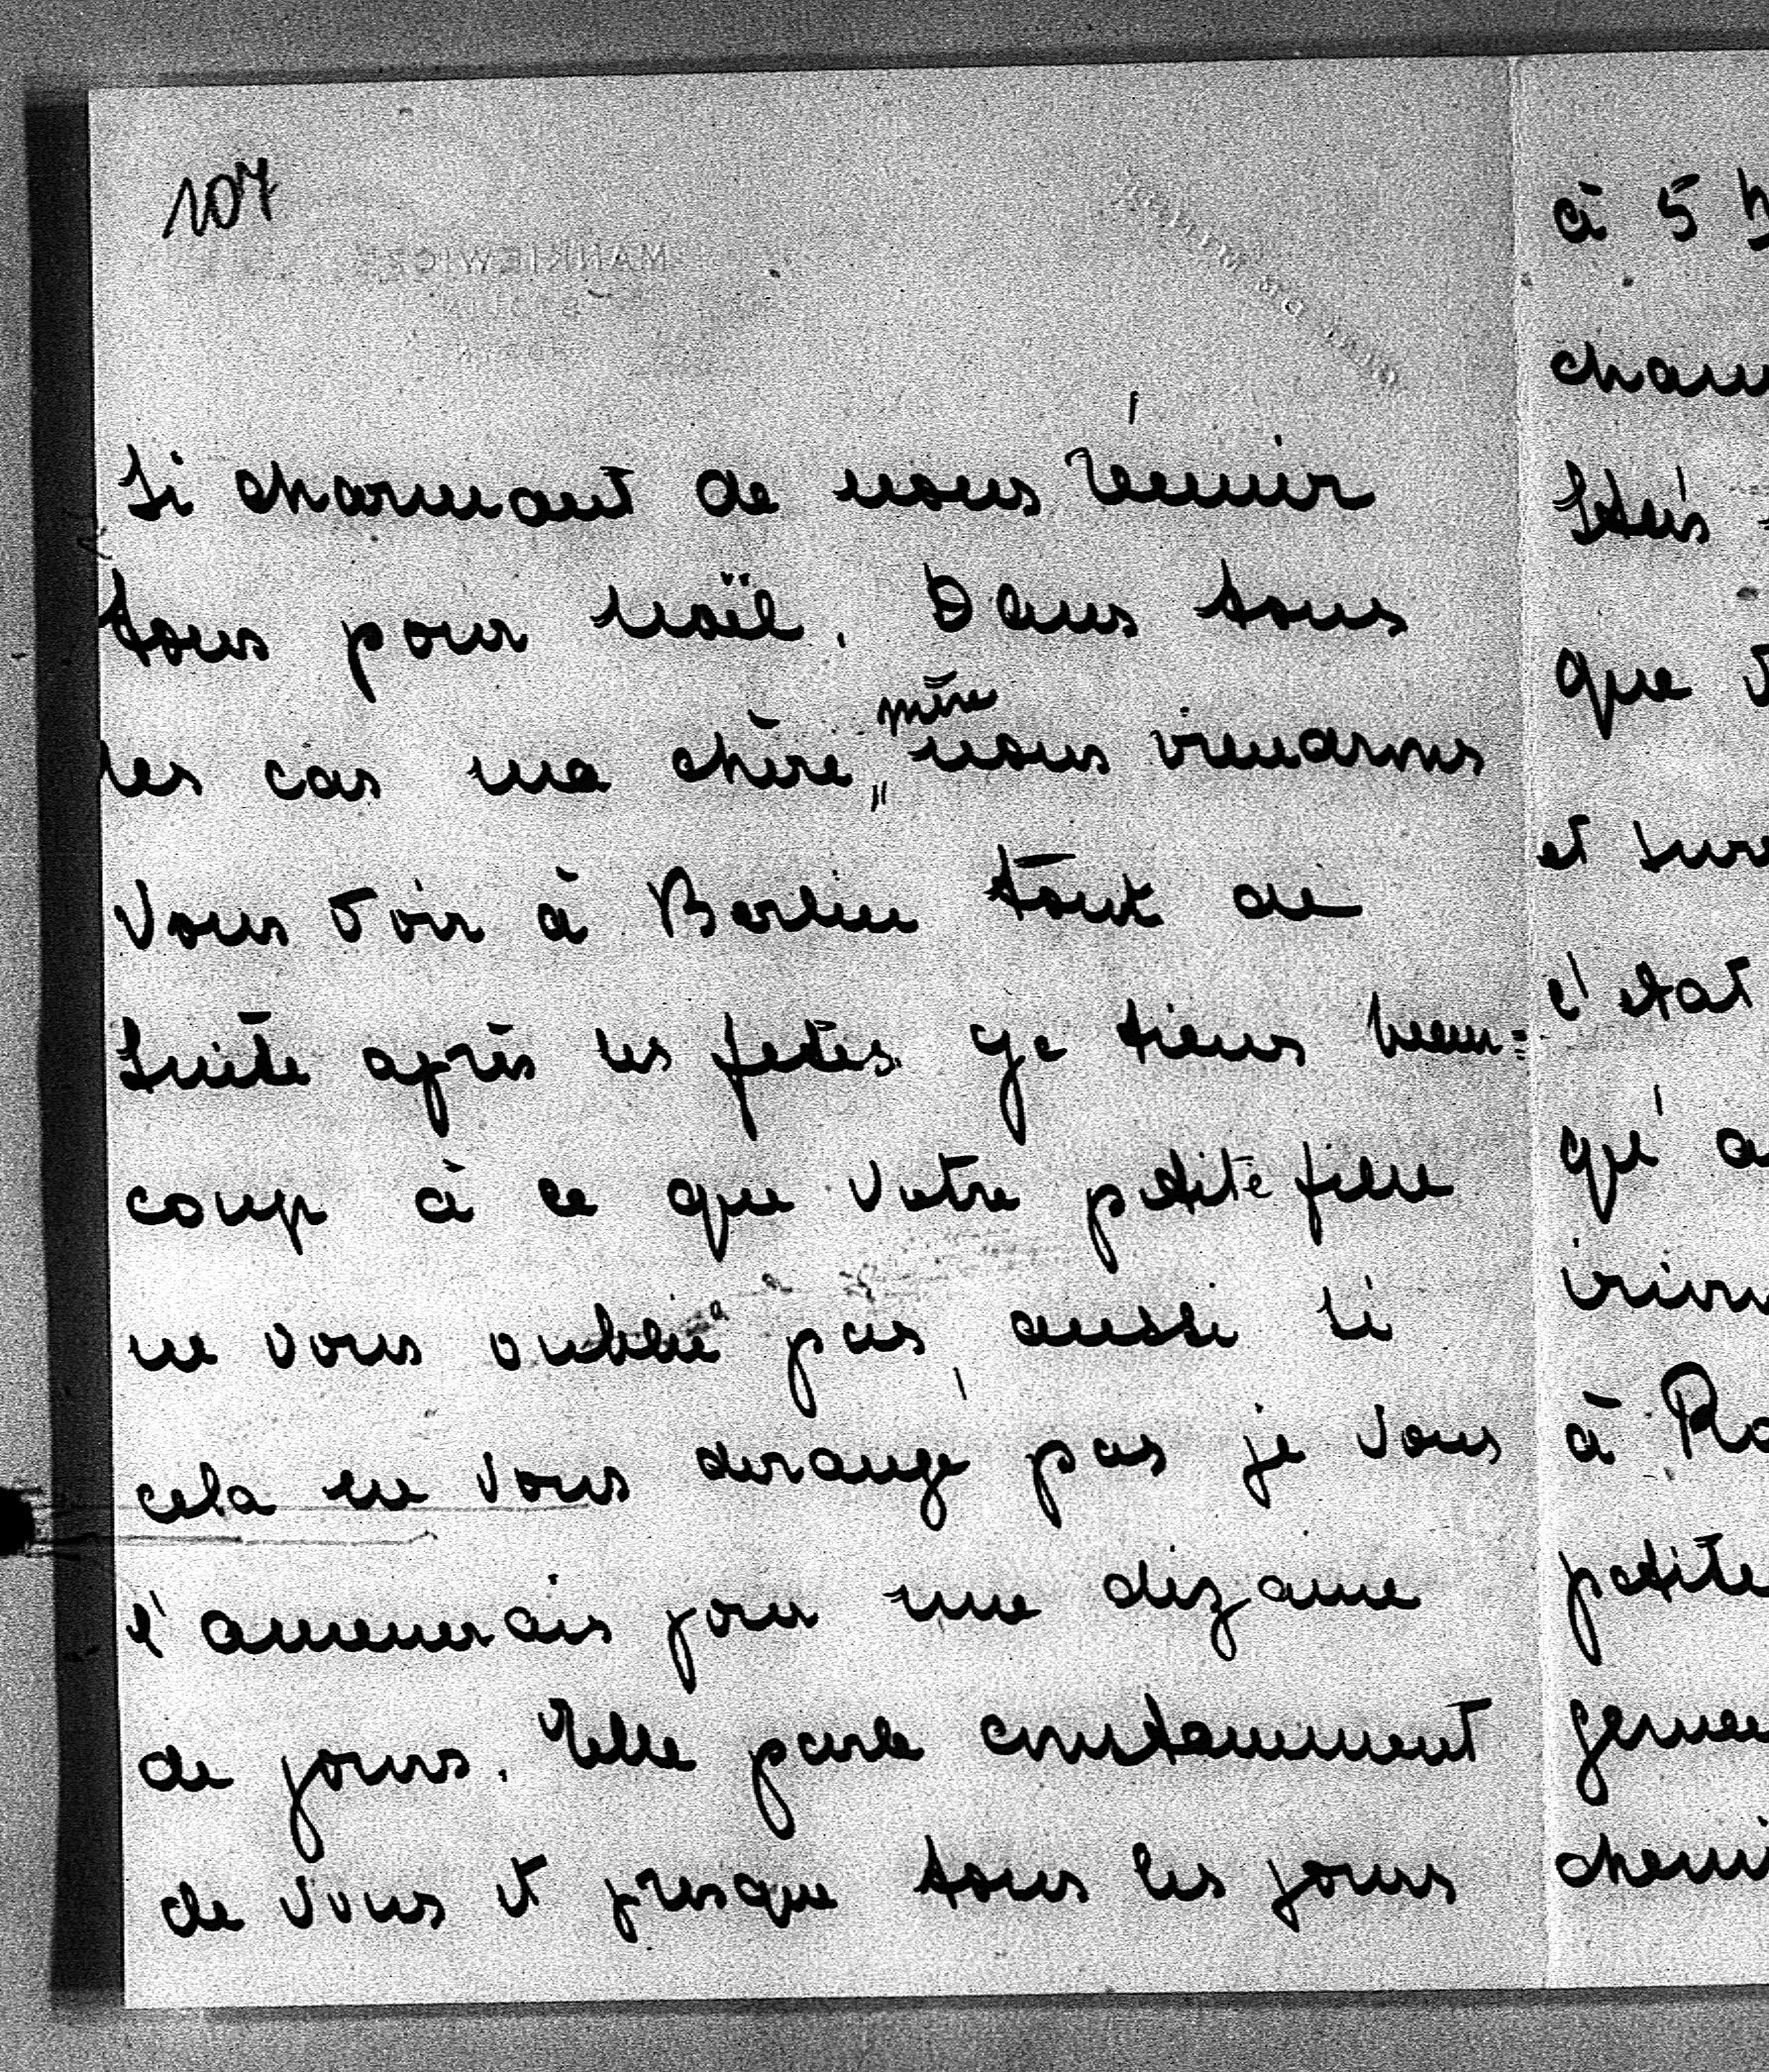 107
MANKIEWICZ
si charmant de nous réunir
tous pour noël. Dans tous
les cas ma chère mère nous viendrons
vous voir à Berlin tout de
suite après les fetes. Je tiens beau=
coup à ce que votre petite fille
ne vous oublie pas, aussi si
cela ne vous derange pas je vous
l'amenerais pour une dizaine
de jours. Elle parle constamment
de vous et presque tous les jours
à 5 h
que
et sur
c'etat
qu' a
à Ro
petite